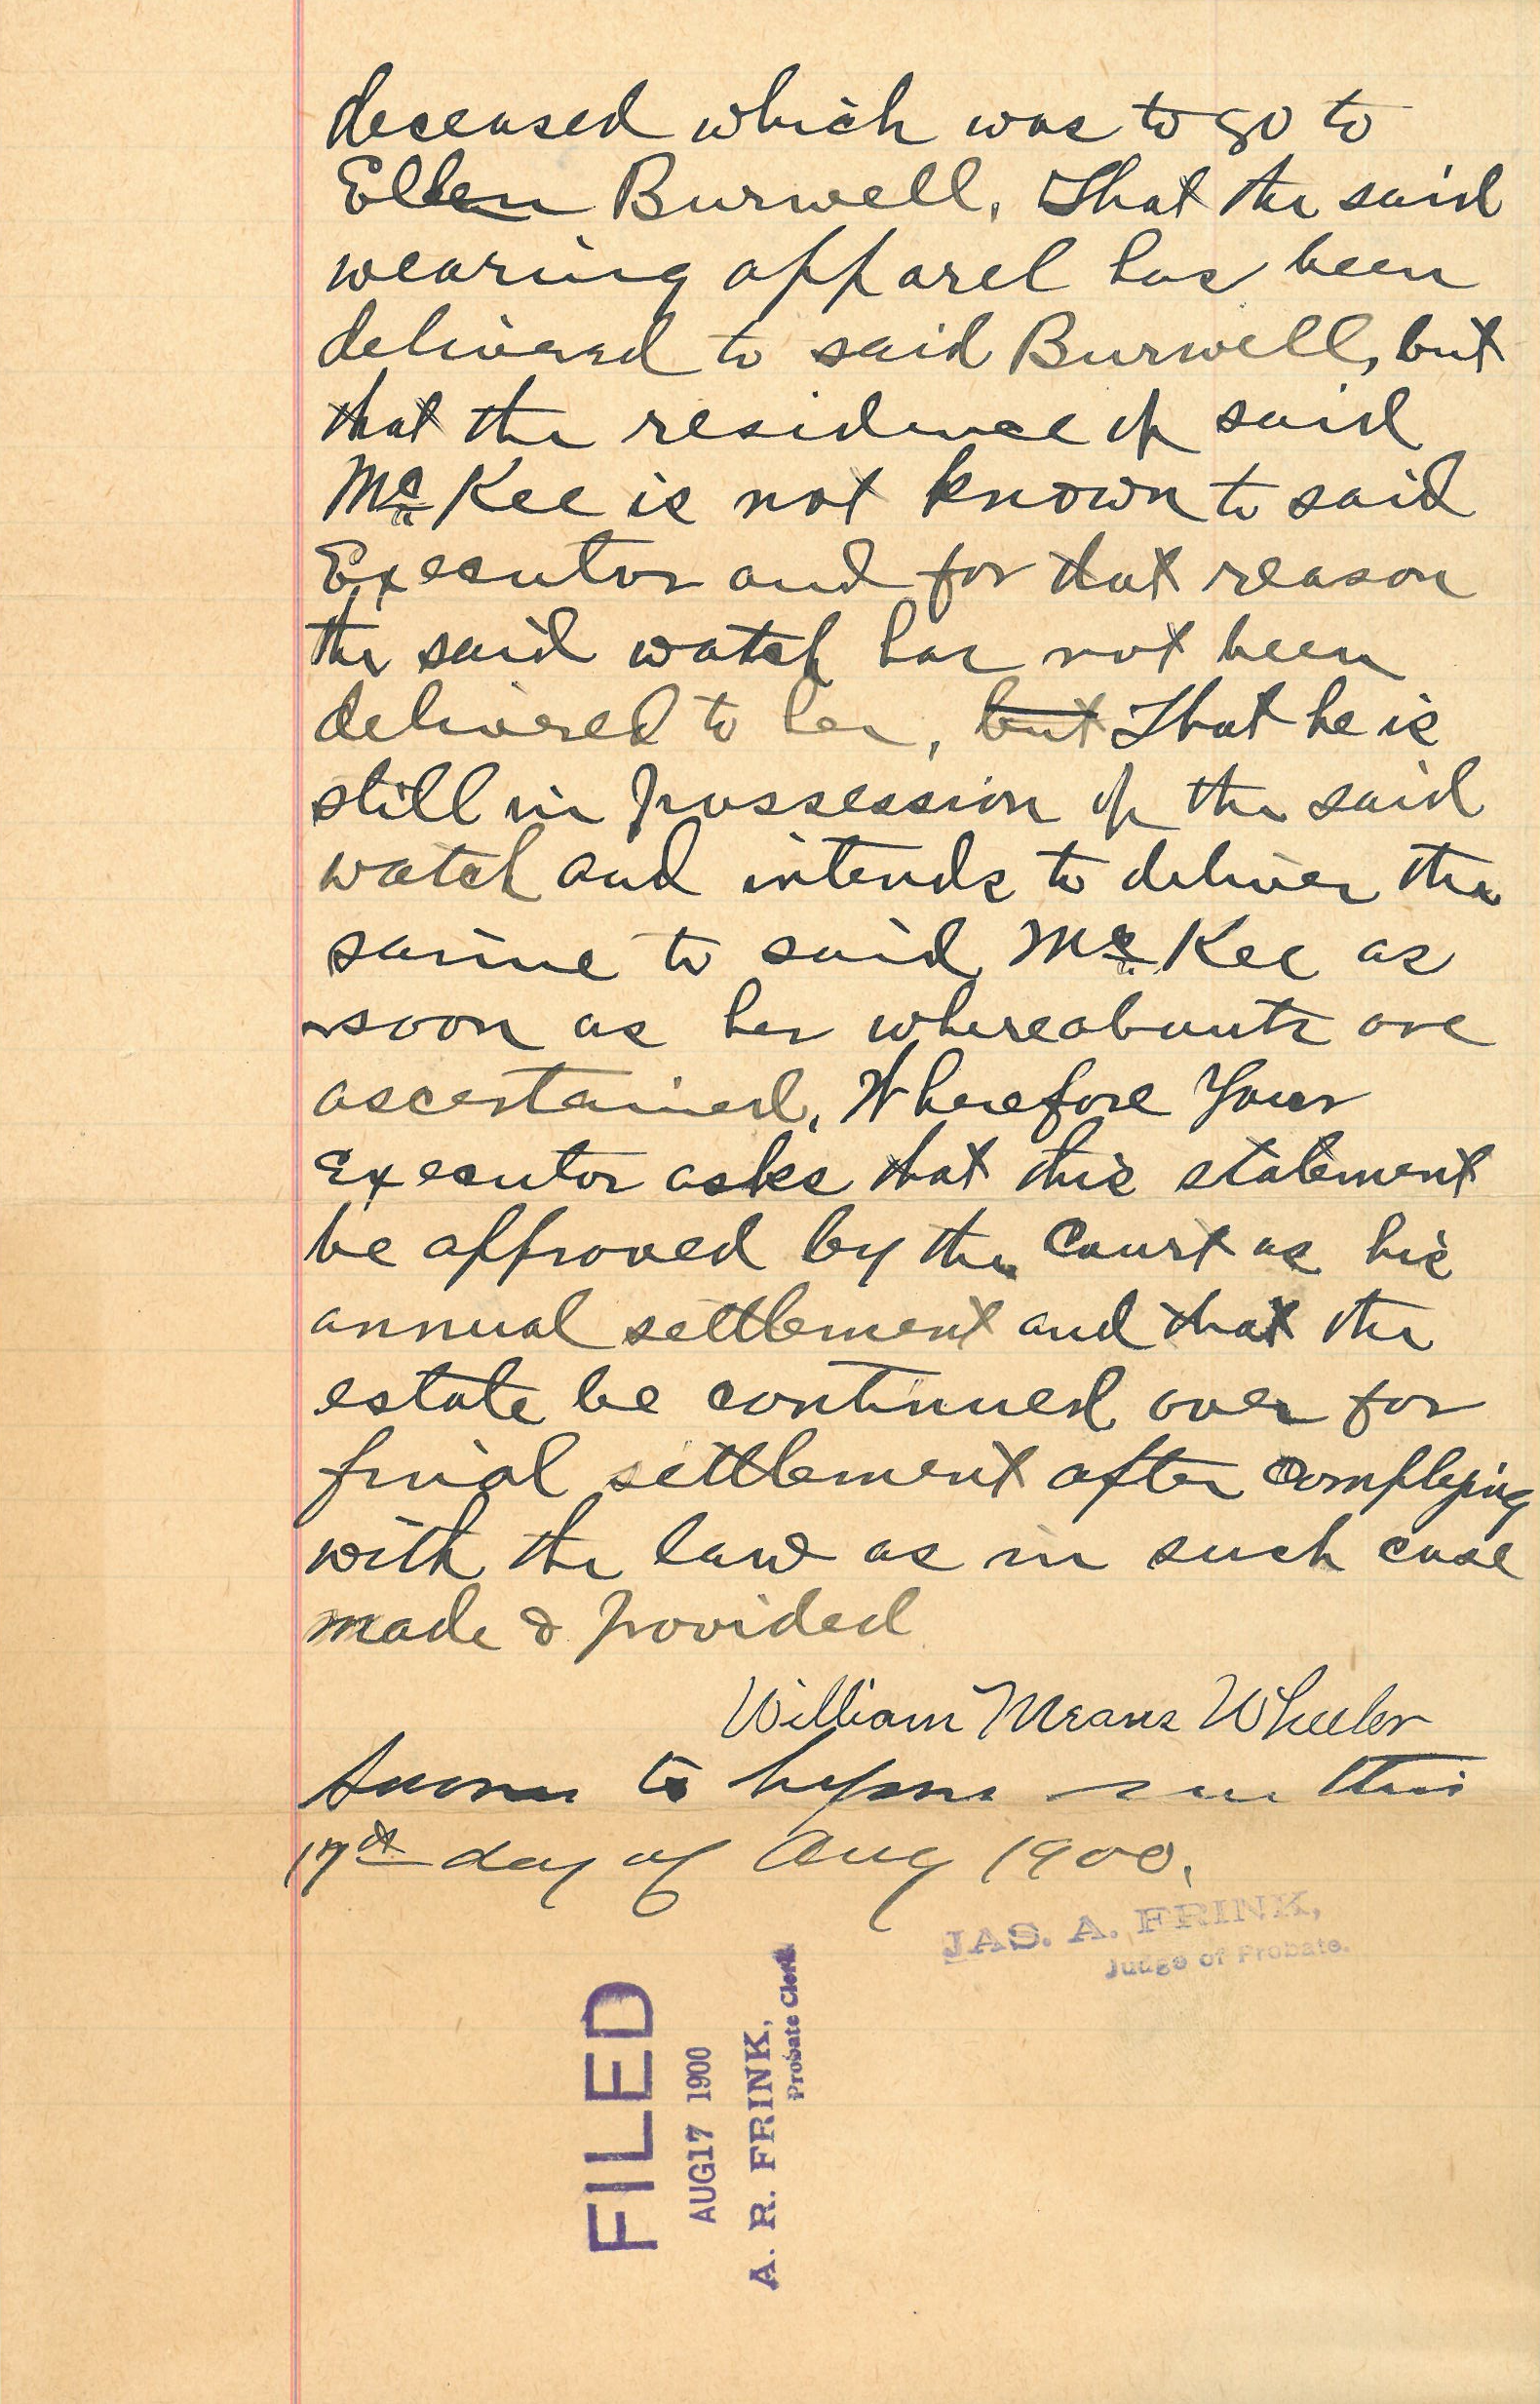 deceased which was to go to
Ellen Burwell. That the said
wearing apparel has been
delivered to said Burwell, but
that the residence of said
McKee is not known to said
Executor and for that reason
the said watch has not been
delivered to her, but That he is
still in possession of the said
watch and intends to deliver the
same to said McKee as
soon as her whereabouts are
ascertained. Wherefore Your
Executor asks that this statement
be approved by the Court as his
annual settlement and that the
estate be continued over for
final settlement after complying
with the law as in such case
made & provided
William Means Wheeler
Sworn to before me this
17th day of Aug 1900.
JAS. A. FRINK,
Judge of Probate.
FILED
AUG 17 1900
A. R. FRINK,
Probate Clerk.